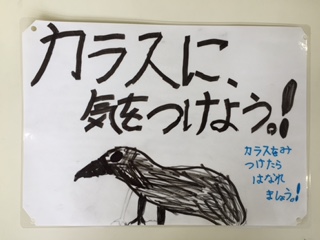 カラスに、
気をつけよう。!
カラスをみ
つけたら
はなれ
ましょう。!